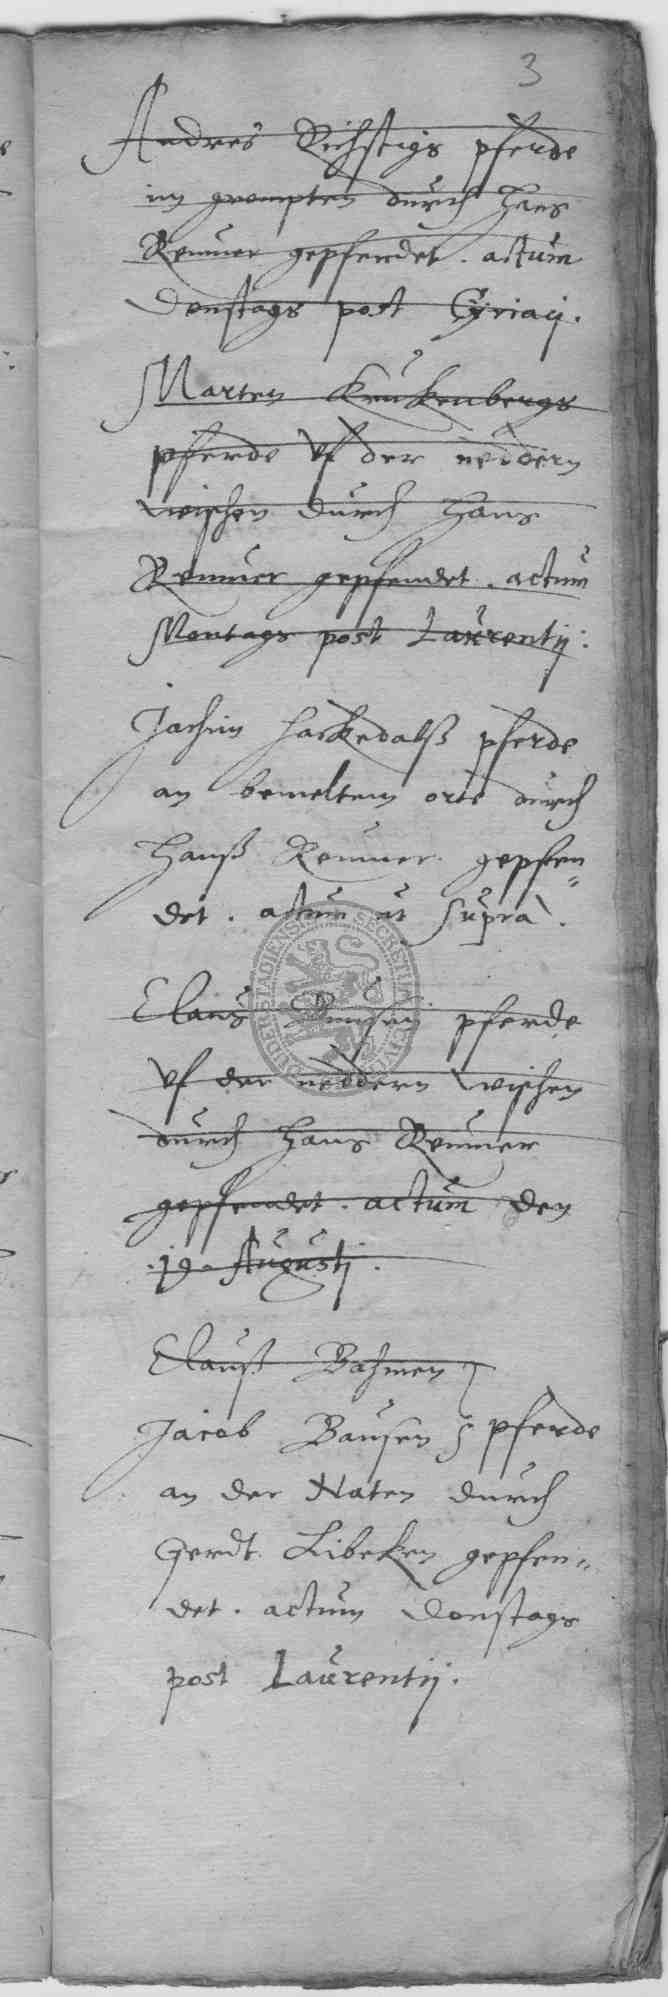 3
Andres Richstigs pferde
im grompten durch Hans
Remmer gepfendet. actum
Donstags post Cyriacj.
Marten Kruskenbergs
pferde vf der neddern
wischen durch Hans
Remmer gepfendet. actum
Montags post Laurentij:
Jachim Hackedalß pferde
an bemeltem orte durch
Hanß Remmer gepfen„
det. actum ut supra.
Claus pferde
vf der neddern wischen
durch Hans Remmer
gepfendet. actum den
Augustj.
Clauß Bahmen
Jacob Bausen pferde
an der Naten durch
Gerdt Libeken gepfen„
det. actum Donstags
post Laurentij.